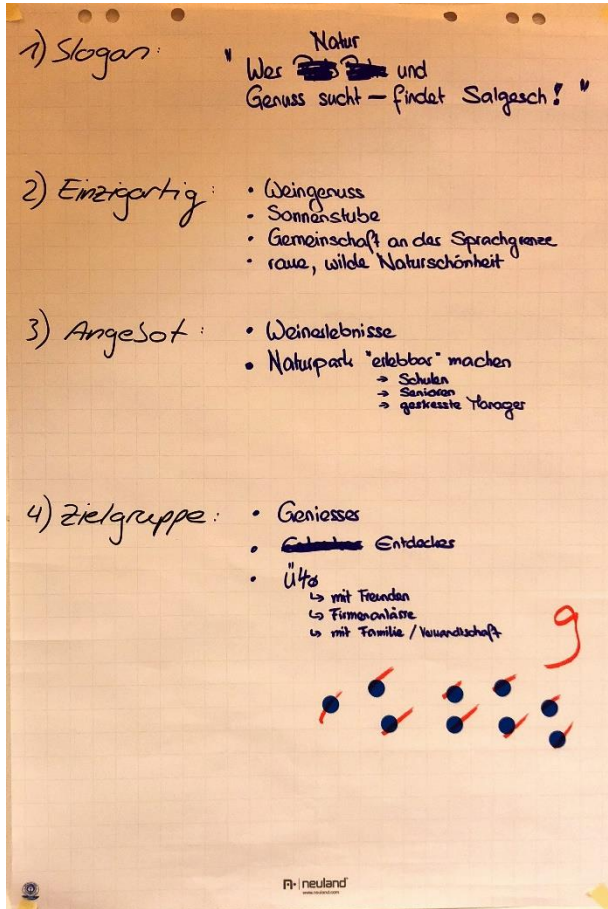 1) Slogan: " Natur
Wer und
Genuss sucht – findet Salgesch! "
2) Einzigartig: • Weingenuss
• Sonnenstube
• Gemeinschaft an der Sprachgrenze
• raue, wilde Naturschönheit
3) Angebot: • Weinerlebnisse
• Naturpark "erlebbar" machen
→ Schulen
→ Senioren
→ gestresste Manager
4) Zielgruppe: • Geniesser
• Entdecker
• Ü40
↳ mit Freunden
↳ Firmenanlässe
↳ mit Familie / Verwandtschaft
9
neuland
www.neuland.com